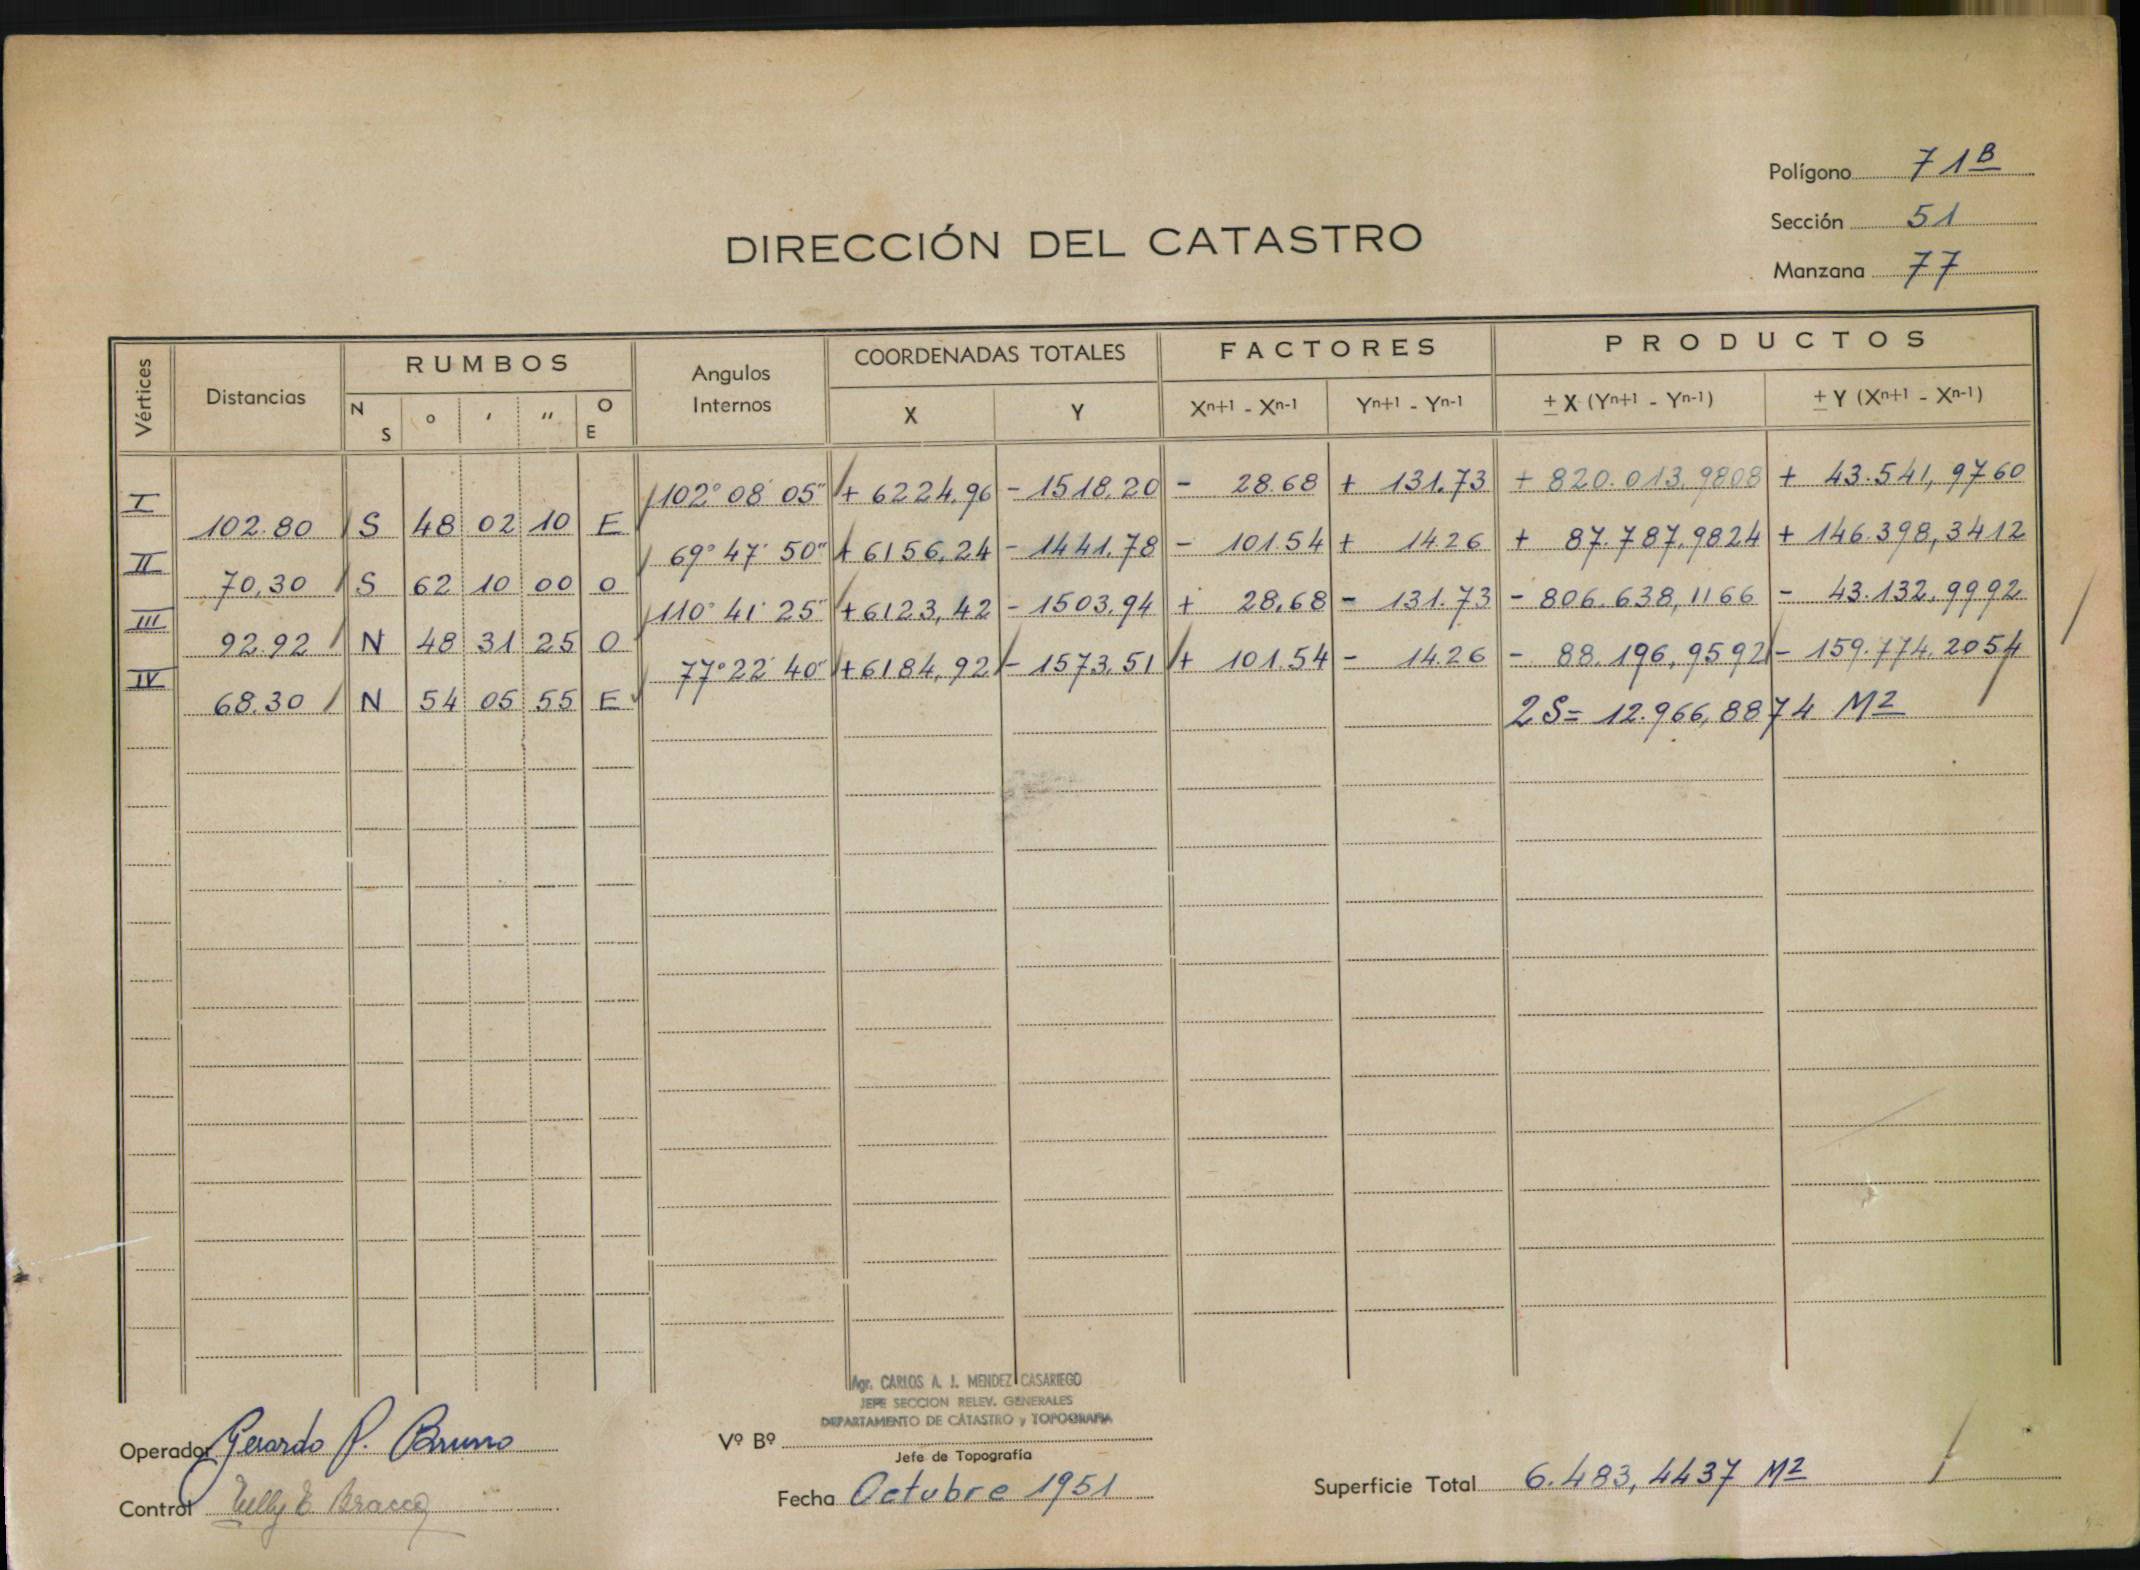 Polígono 71B
Sección 51
Manzana 77
DIRECCIÓN DEL CATASTRO
Vértices Distancias RUMBOS Angulos Internos COORDENADAS TOTALES FACTORES PRODUCTOS
N S ° ' " O E X Y Xn+1 - Xn-1 Yn+1 - Yn-1 ± X (Yn+1 - Yn-1) ± Y (Xn+1 - Xn-1)
I 102° 08' 05" + 6224,96 - 1518,20 - 28.68 + 131.73 + 820.013,9808 + 43.541,9760
102.80 S 48 02 10 E
II 69° 47' 50" + 6156,24 - 1441.78 - 101.54 + 14.26 + 87.787,9824 + 146.398,3412
70,30 S 62 10 00 O
III 110° 41' 25" + 6123,42 - 1503,94 + 28,68 - 131.73 - 806.638,1166 - 43.132,9992
92.92 N 48 31 25 O
IV 77° 22' 40" + 6184,92 - 1573,51 + 101.54 - 14.26 - 88.196,9592 - 159.774.2054
68.30 N 54 05 55 E
2S= 12.966,8874 M2
Agr. CARLOS A. J. MENDEZ CASARIEGO
JEFE SECCION RELEV. GENERALES
DEPARTAMENTO DE CATASTRO y TOPOGRAFIA
Operador Gerardo P. Bruno
Vº Bº
Jefe de Topografía
Control Nelly E. Bracco
Fecha Octubre 1951
Superficie Total 6.483,4437 M2